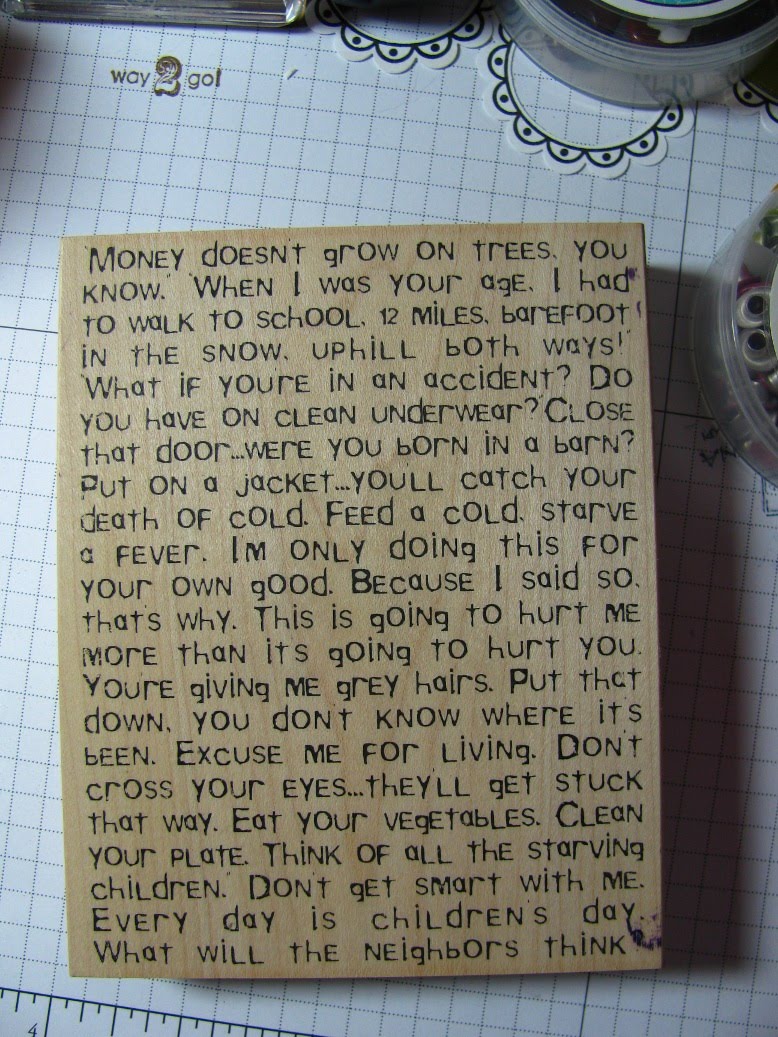 way 2 go!
"Money doesn't grow on trees, you
know." "When I was your age, I had
to walk to school, 12 miles, barefoot
in the snow, uphill both ways!"
"What if you're in an accident? Do
you have on clean underwear?" Close
that door...were you born in a barn?
Put on a jacket...you'll catch your
death of cold. Feed a cold, starve
a fever. I'm only doing this for
your own good. Because I said so,
that's why. This is going to hurt me
more than it's going to hurt you.
You're giving me grey hairs. Put that
down, you don't know where it's
been. Excuse me for living. Don't
cross your eyes...they'll get stuck
that way. Eat your vegetables. Clean
your plate. Think of all the starving
children." Don't get smart with me.
Every day is children's day.
What will the neighbors think
4